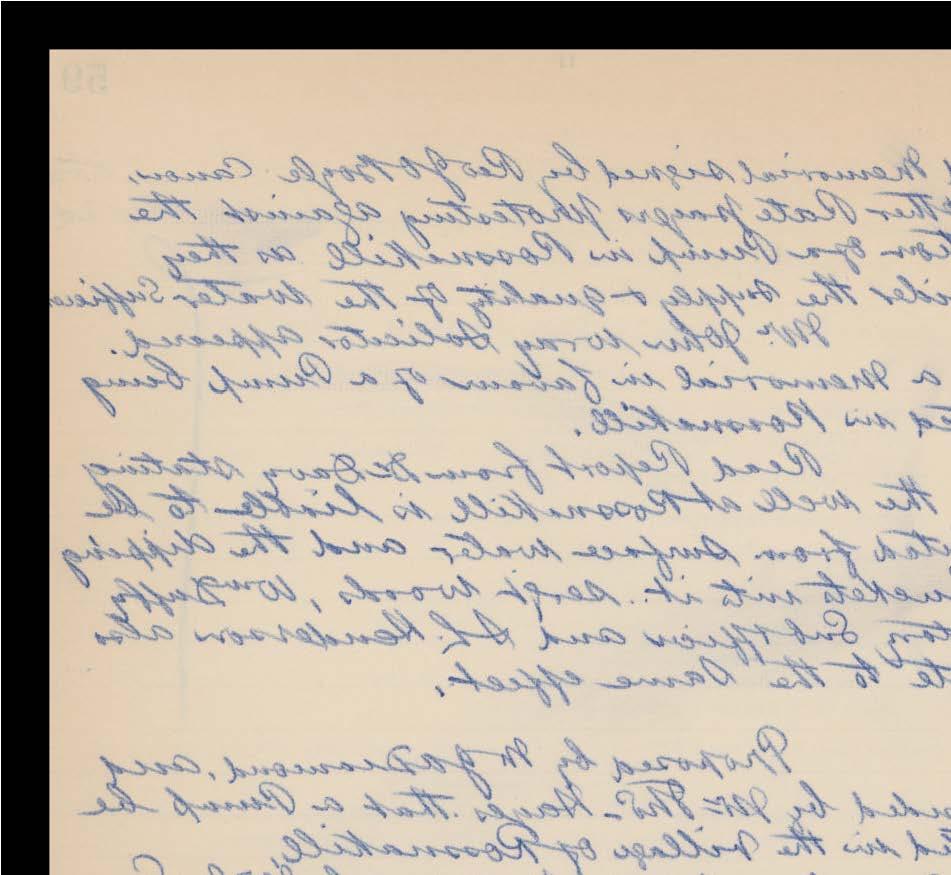 59
Memorial signed by Rev J O Boyle Canon,
ther Rate payers protesting against the
tion of a Pump in Rossnakill as they
ider the supply & quality of the water Sufficien
Mr. John Wray Solicitor appeared.
a Memorial in favour of a Pump being
ted in Rossnakill.
Read Report from Dr Davy stating
the well at Rossnakill is liable to be
ted from surface water and the dipping
uckets into it. Sergt Woods, Wm Duffy
Subofficer and Henderson also
te to the same effect.
Proposed by Diamond, and
nded by Mr Thos Hayes that a Pump be
ted in the Village of Rossnakill,